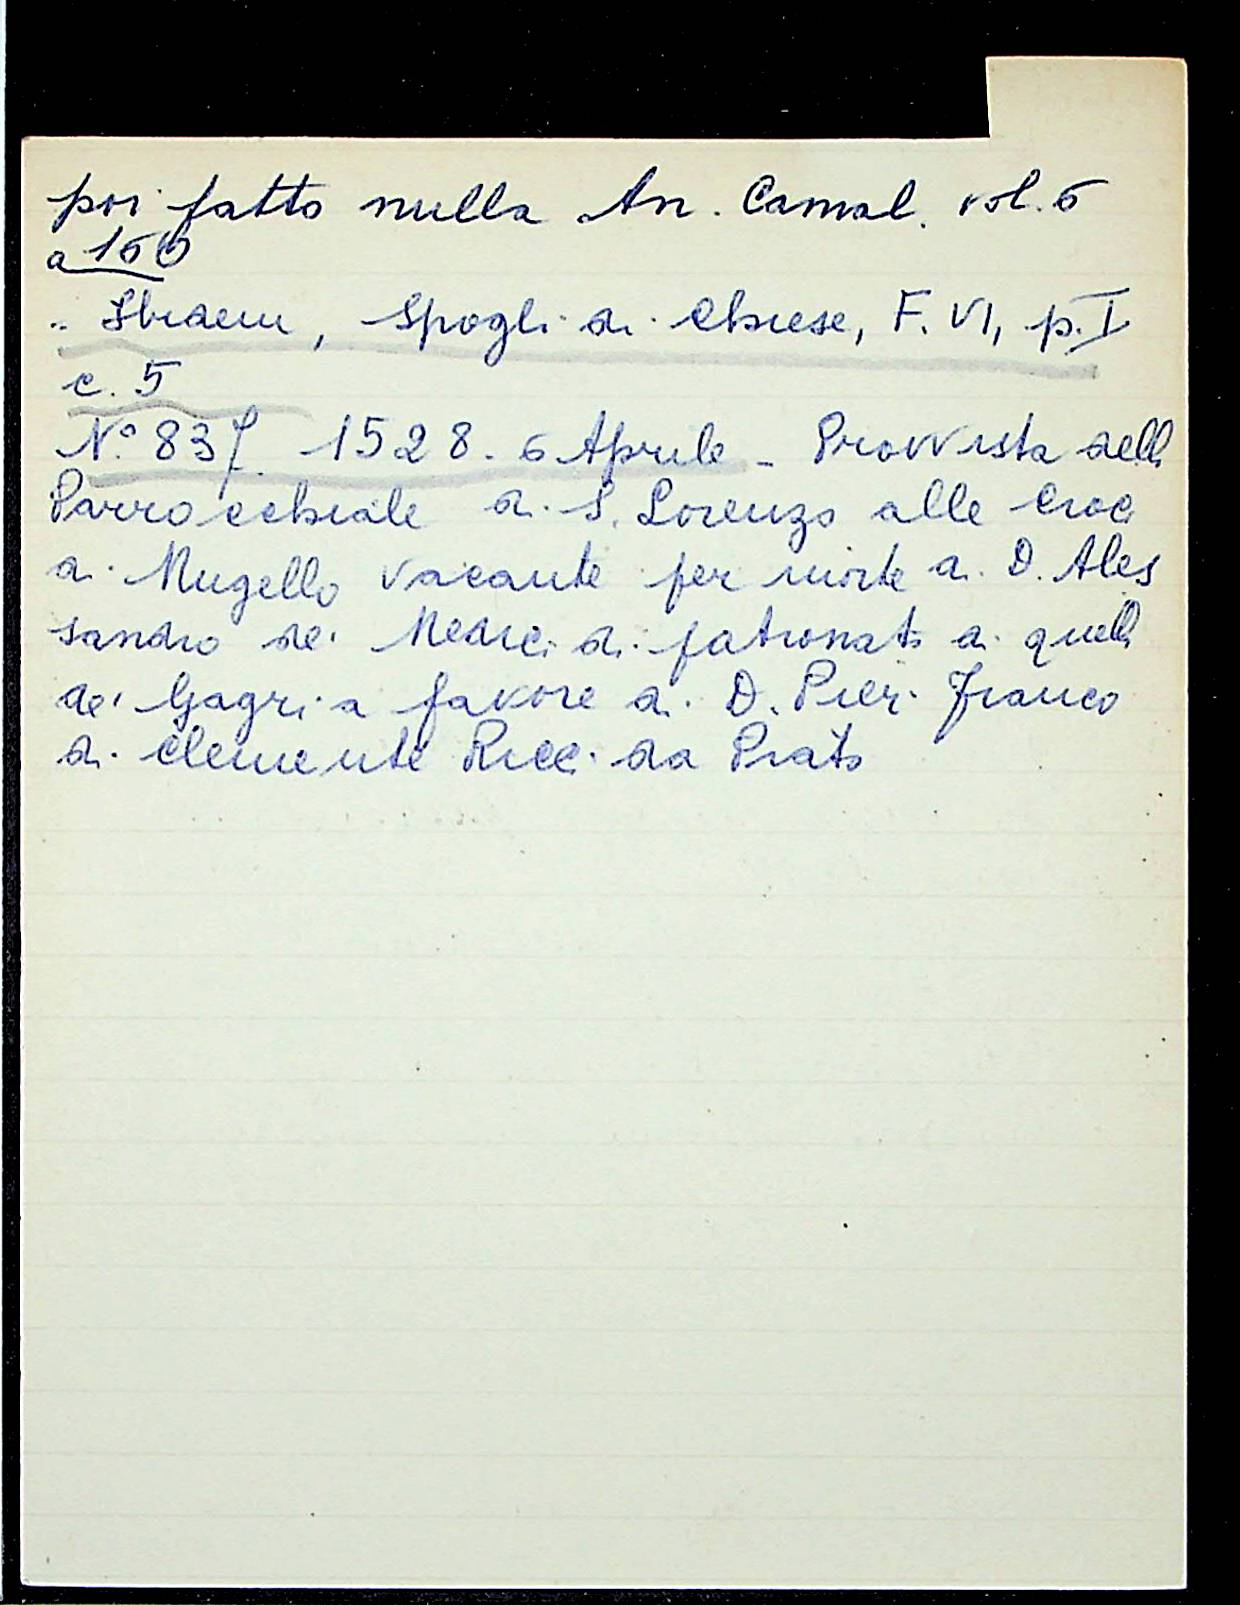 poi fatto nulla An. Camal. vol. 6
a 160
.. Ibidem, Spogli di Chiese, F. VI, p. I
c. 5
N.° 837. 1528. 6 Aprile - Provvista della
Parrocchiale di S. Lorenzo alle Croci
di Mugello vacante per morte di D. Ales
sandro de' Medici di patronato di quelli
de' Gagri a favore di D. Pier Franco
di Clemente Ricci da Prato